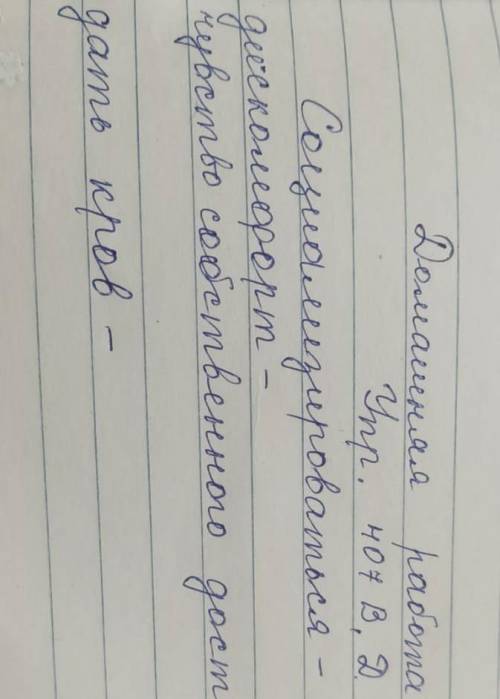 Домашняя работа
Упр. 407 В, Д.
Социализироваться -
дискомфорт -
чувство собственного дост
дать кров -